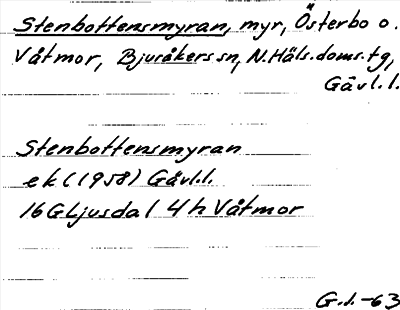 Stenbottensmyran, myr, Österbo o.
Våtmor, Bjuråkers sn, N.Häls.doms.tg,
Gävl.l.
Stenbottensmyran
ek (1958) Gävl.l.
16G Ljusdal 4h Våtmor
G.l.-63